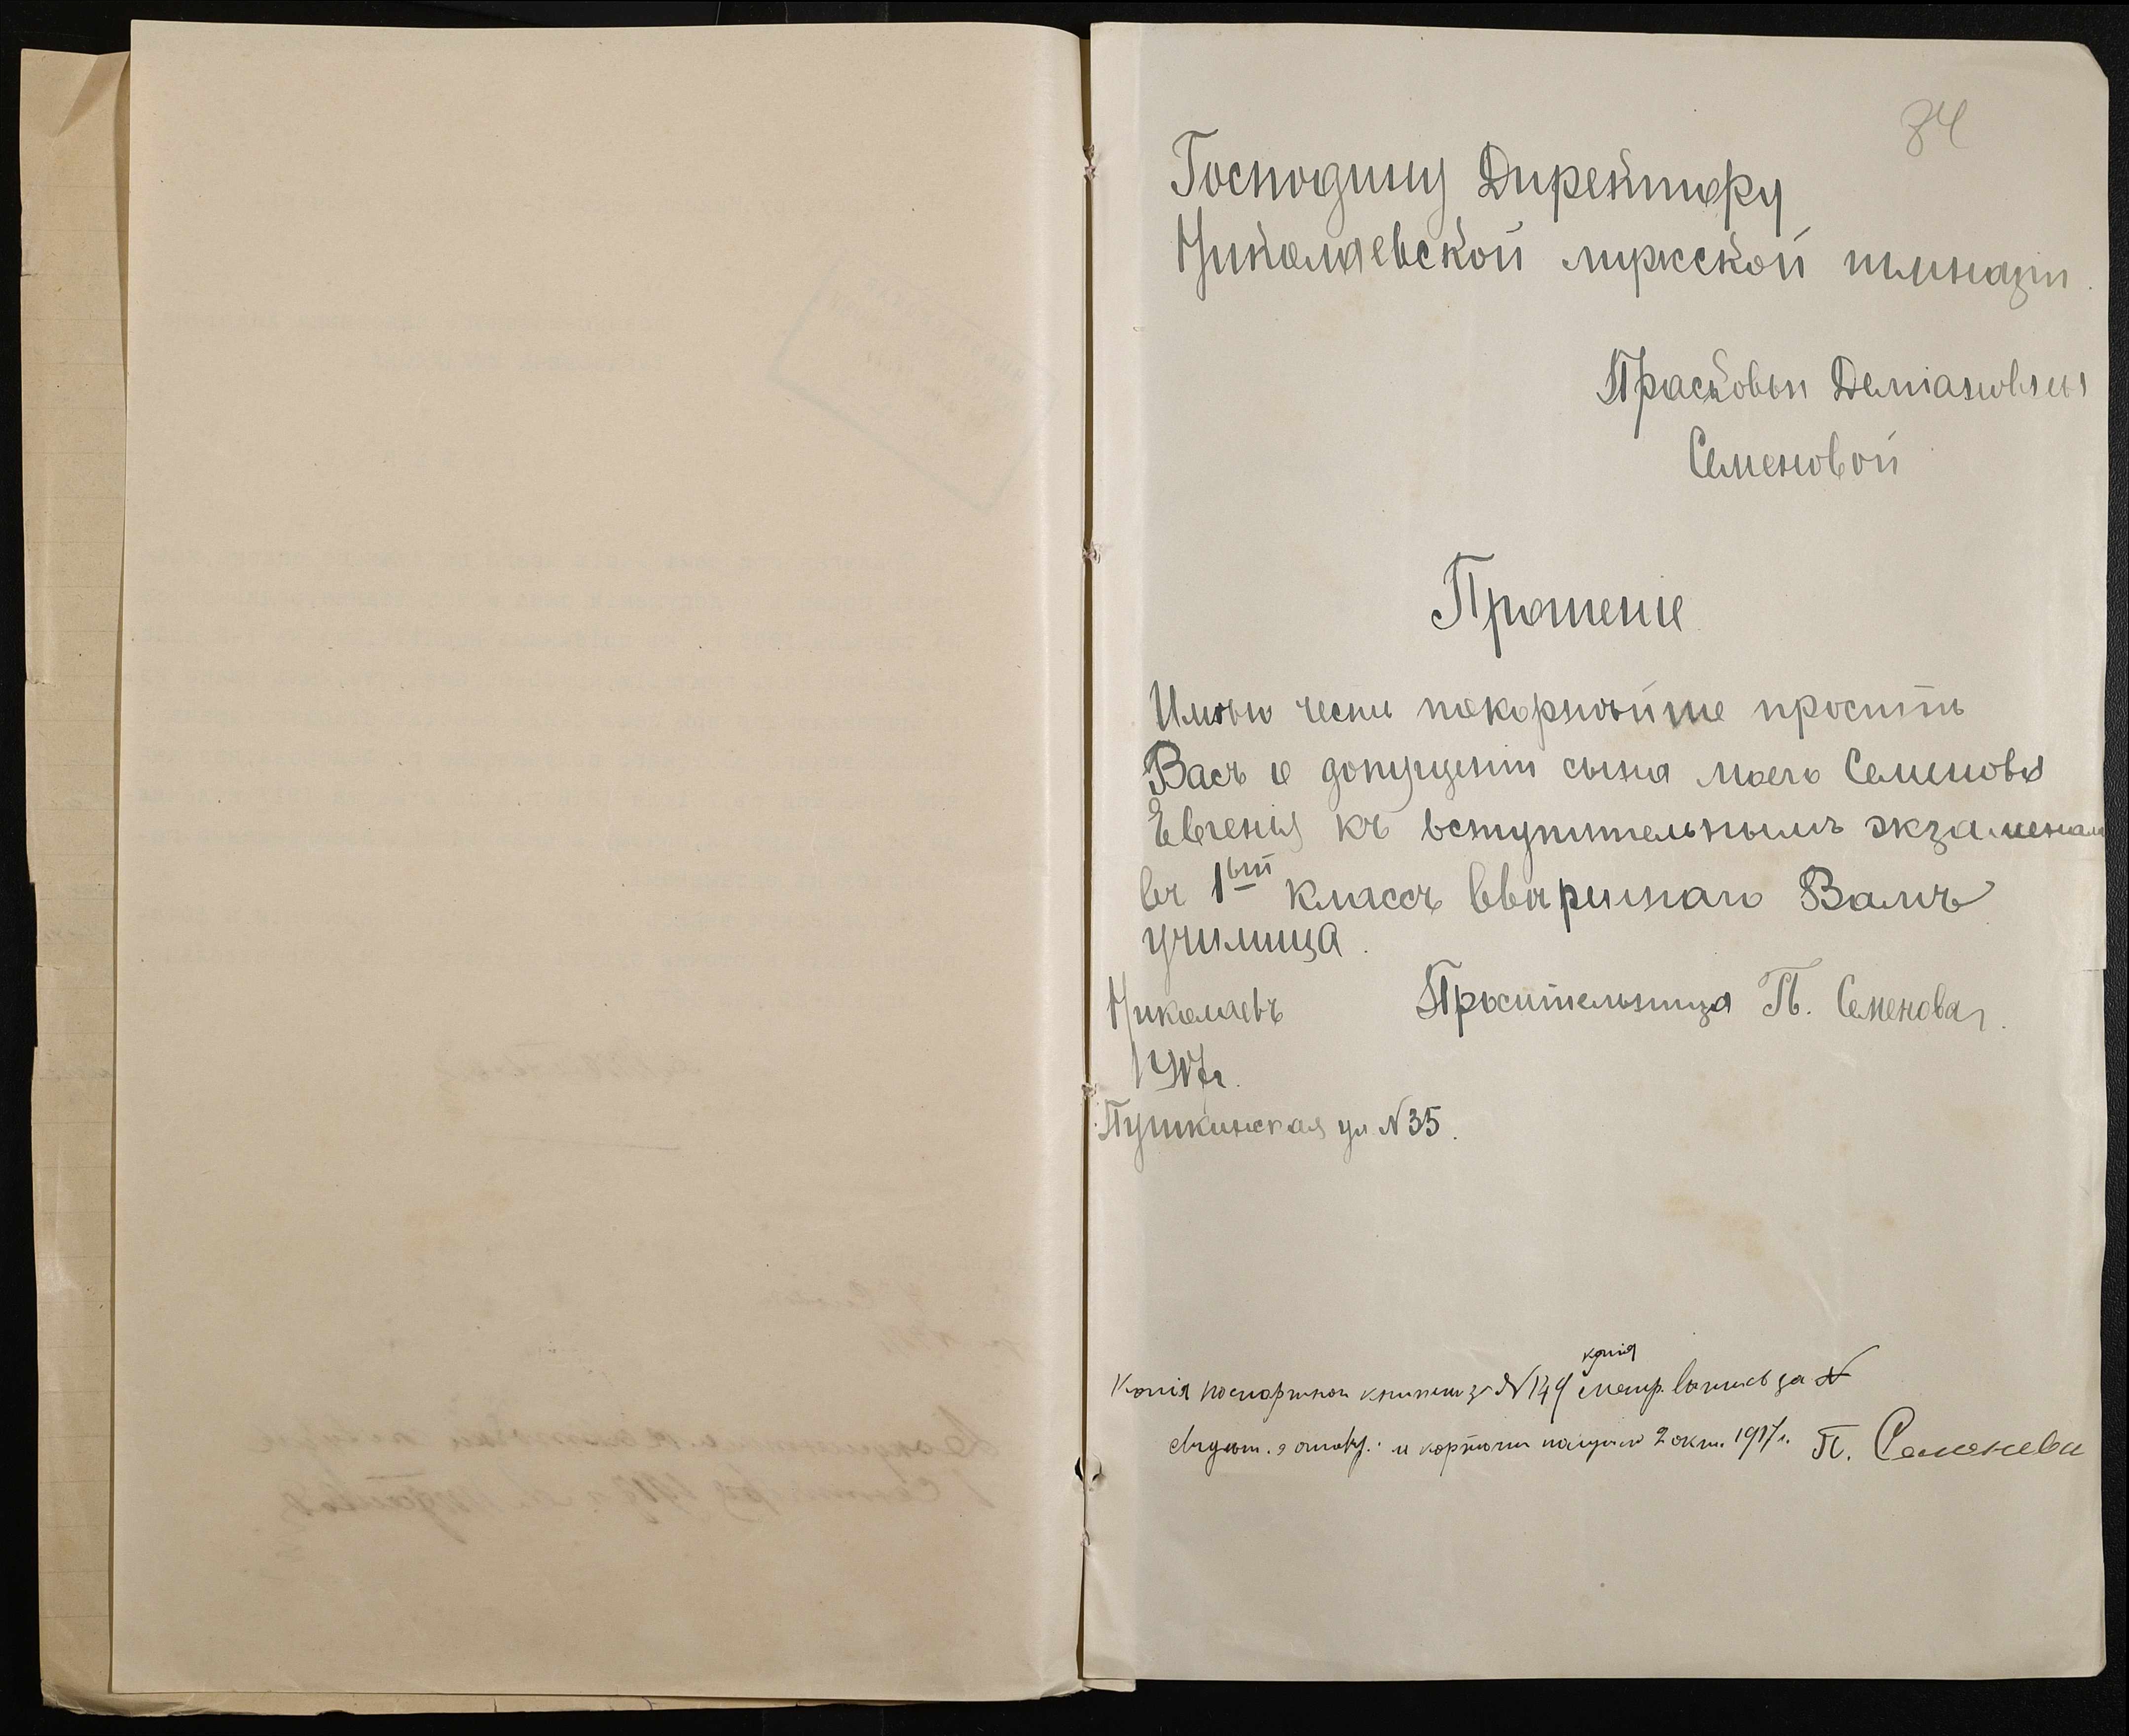 84
Господину Директору
Николаевской мужской гимназіи.
Прасковьи Деміановны
Семеновой
Прошеніе
Имѣю честь покорнѣйше просить
Васъ о допущеніи сына моего Семенова
Евгенія къ вступительнымъ экзаменам
въ 1ый классъ ввѣреннаго Вамъ
училища.
Николаевъ Просительница П. Семенова.
1917г.
Пушкинская ул. N 35.
копія
Копія паспортной книжки за N 149 метр. выпись за N
свидѣт. о оспопр. и карточки получила 2 окт. 1917 г. П. Семенова